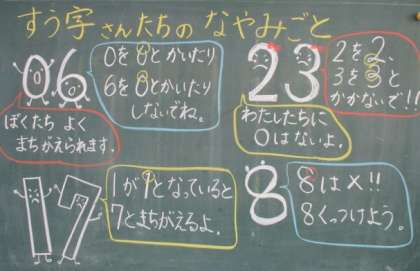 すう字さんたちのなやみごと
06
0を0とかいたり
6を0とかいたり
しないでね。
ぼくたち よく
まちがえられます。
23
2を2、
3を3と
かかないで!!
わたしたちに
0はないよ。
17
1が1となっていると
7とまちがえるよ。
8
8は×!!
8くっつけよう。